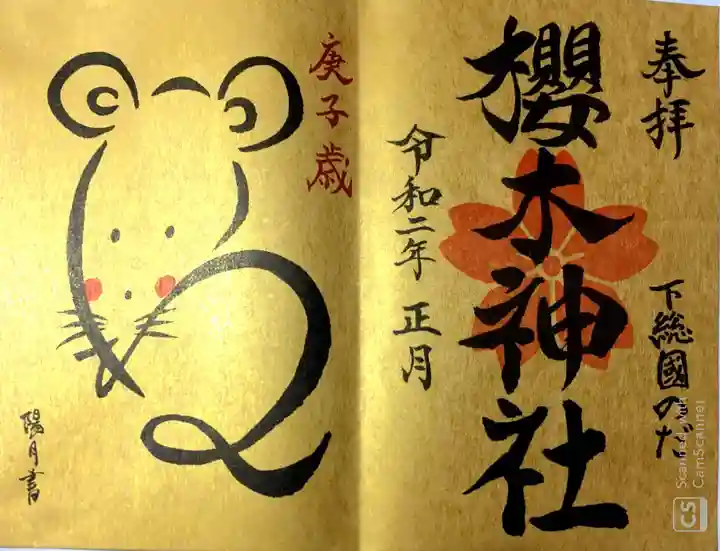 奉拝
下総國のだ
櫻木神社
令和二年 正月
庚子歳
陽月書
Scanned with
CamScanner
CS